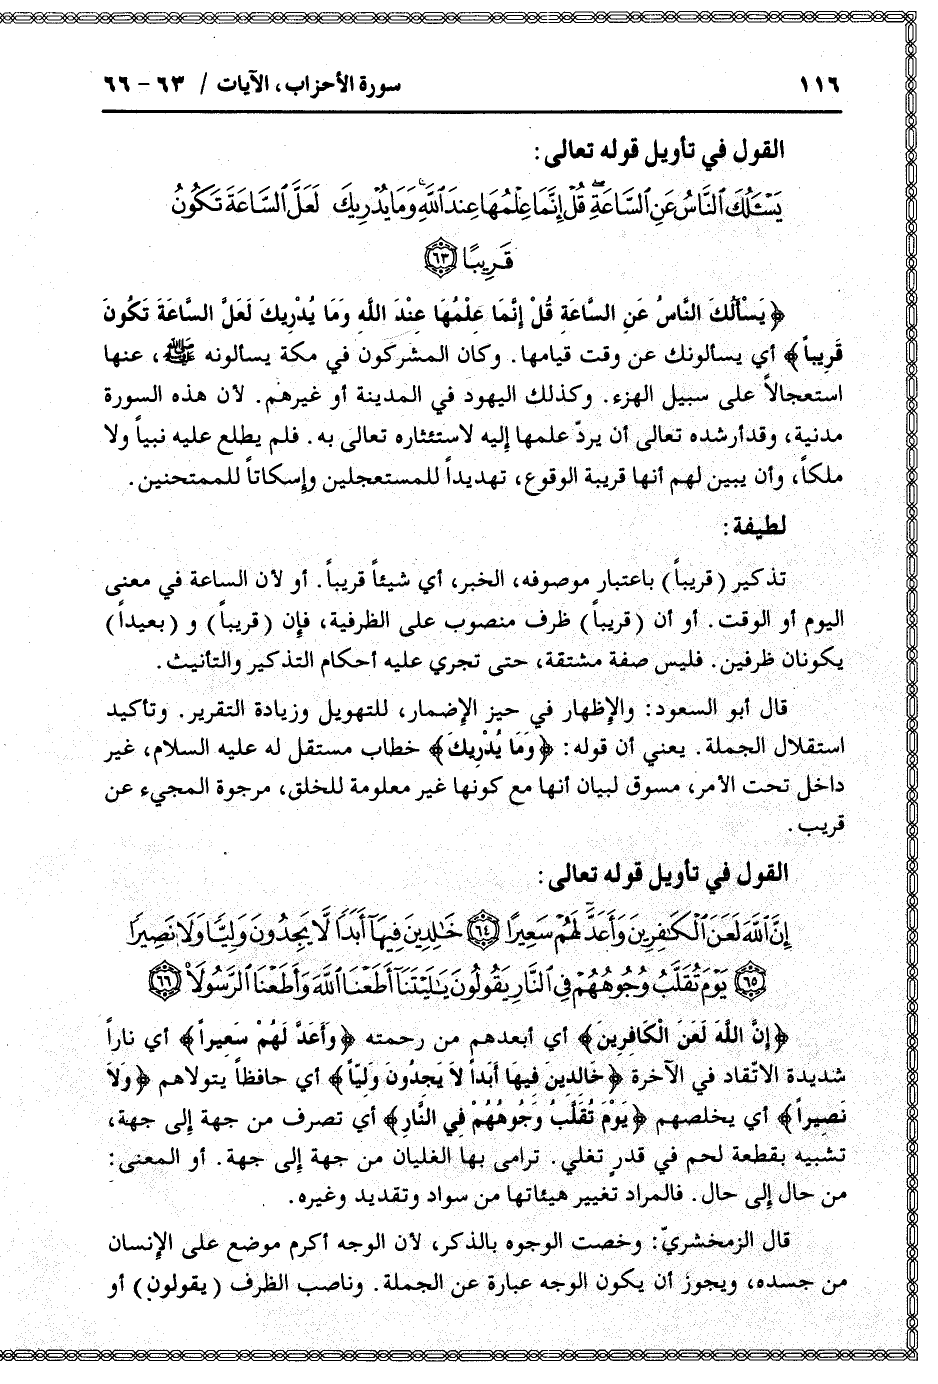 ١١٦ سورة الأحزاب، الآيات / ٦٣ - ٦٦
القول في تأويل قوله تعالى:
يَسْـَٔلُكَ ٱلنَّاسُ عَنِ ٱلسَّاعَةِۖ قُلْ إِنَّمَا عِلْمُهَا عِندَ ٱللَّهِۚ وَمَا يُدْرِيكَ لَعَلَّ ٱلسَّاعَةَ تَكُونُ
قَرِيبًا ٦٣
﴿يَسْأَلُكَ النَّاسُ عَنِ السَّاعَةِ قُلْ إِنَّمَا عِلْمُهَا عِنْدَ اللَّهِ وَمَا يُدْرِيكَ لَعَلَّ السَّاعَةَ تَكُونَ
قَرِيباً﴾ أي يسألونك عن وقت قيامها. وكان المشركون في مكة يسألونه ﷺ، عنها
استعجالاً على سبيل الهزء. وكذلك اليهود في المدينة أو غيرهم. لأن هذه السورة
مدنية، وقدأرشده تعالى أن يردّ علمها إليه لاستئثاره تعالى به. فلم يطلع عليه نبياً ولا
ملكاً، وأن يبين لهم أنها قريبة الوقوع، تهديداً للمستعجلين وإسكاتاً للممتحنين.
لطيفة:
تذكير (قريباً) باعتبار موصوفه، الخبر، أي شيئاً قريباً. أو لأن الساعة في معنى
اليوم أو الوقت. أو أن (قريباً) ظرف منصوب على الظرفية، فإن (قريباً) و (بعيداً)
يكونان ظرفين. فليس صفة مشتقة، حتى تجري عليه أحكام التذكير والتأنيث.
قال أبو السعود: والإظهار في حيز الإضمار، للتهويل وزيادة التقرير. وتأكيد
استقلال الجملة. يعني أن قوله: ﴿وَمَا يُدْرِيكَ﴾ خطاب مستقل له عليه السلام، غير
داخل تحت الأمر، مسوق لبيان أنها مع كونها غير معلومة للخلق، مرجوة المجيء عن
قريب.
القول في تأويل قوله تعالى:
إِنَّ ٱللَّهَ لَعَنَ ٱلْكَٰفِرِينَ وَأَعَدَّ لَهُمْ سَعِيرًا ٦٤ خَٰلِدِينَ فِيهَآ أَبَدًا لَّا يَجِدُونَ وَلِيًّا وَلَا نَصِيرًا
٦٥ يَوْمَ تُقَلَّبُ وُجُوهُهُمْ فِى ٱلنَّارِ يَقُولُونَ يَٰلَيْتَنَآ أَطَعْنَا ٱللَّهَ وَأَطَعْنَا ٱلرَّسُولَا۠ ٦٦
﴿إِنَّ اللَّهَ لَعَنَ الْكَافِرِينَ﴾ أي أبعدهم من رحمته ﴿وَأَعَدَّ لَهُمْ سَعِيراً﴾ أي ناراً
شديدة الاتّقاد في الآخرة ﴿خَالِدِينَ فِيهَا أَبَداً لاَ يَجِدُونَ وَلِيّاً﴾ أي حافظاً يتولاهم ﴿وَلاَ
نَصِيراً﴾ أي يخلصهم ﴿يَوْمَ تُقَلَّبُ وُجُوهُهُمْ فِي النَّارِ﴾ أي تصرف من جهة إلى جهة،
تشبيه بقطعة لحم في قدرٍ تغلي. ترامى بها الغليان من جهة إلى جهة. أو المعنى:
من حال إلى حال. فالمراد تغيير هيئاتها من سواد وتقديد وغيره.
قال الزمخشريّ: وخصت الوجوه بالذكر، لأن الوجه أكرم موضع على الإنسان
من جسده، ويجوز أن يكون الوجه عبارة عن الجملة. وناصب الظرف (يقولون) أو